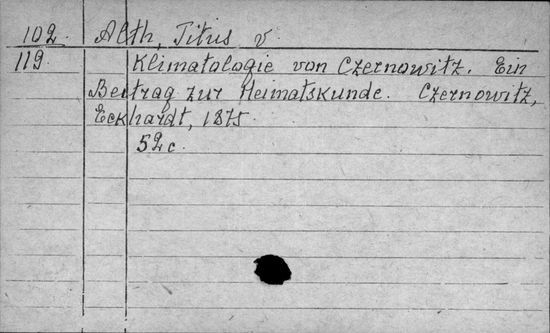 102. Alth, Titus v.
119 Klimatologie von Czernowitz. Ein
Beitrag zur Heimatskunde. Czernowitz,
Eckhardt, 1875.
52 c.